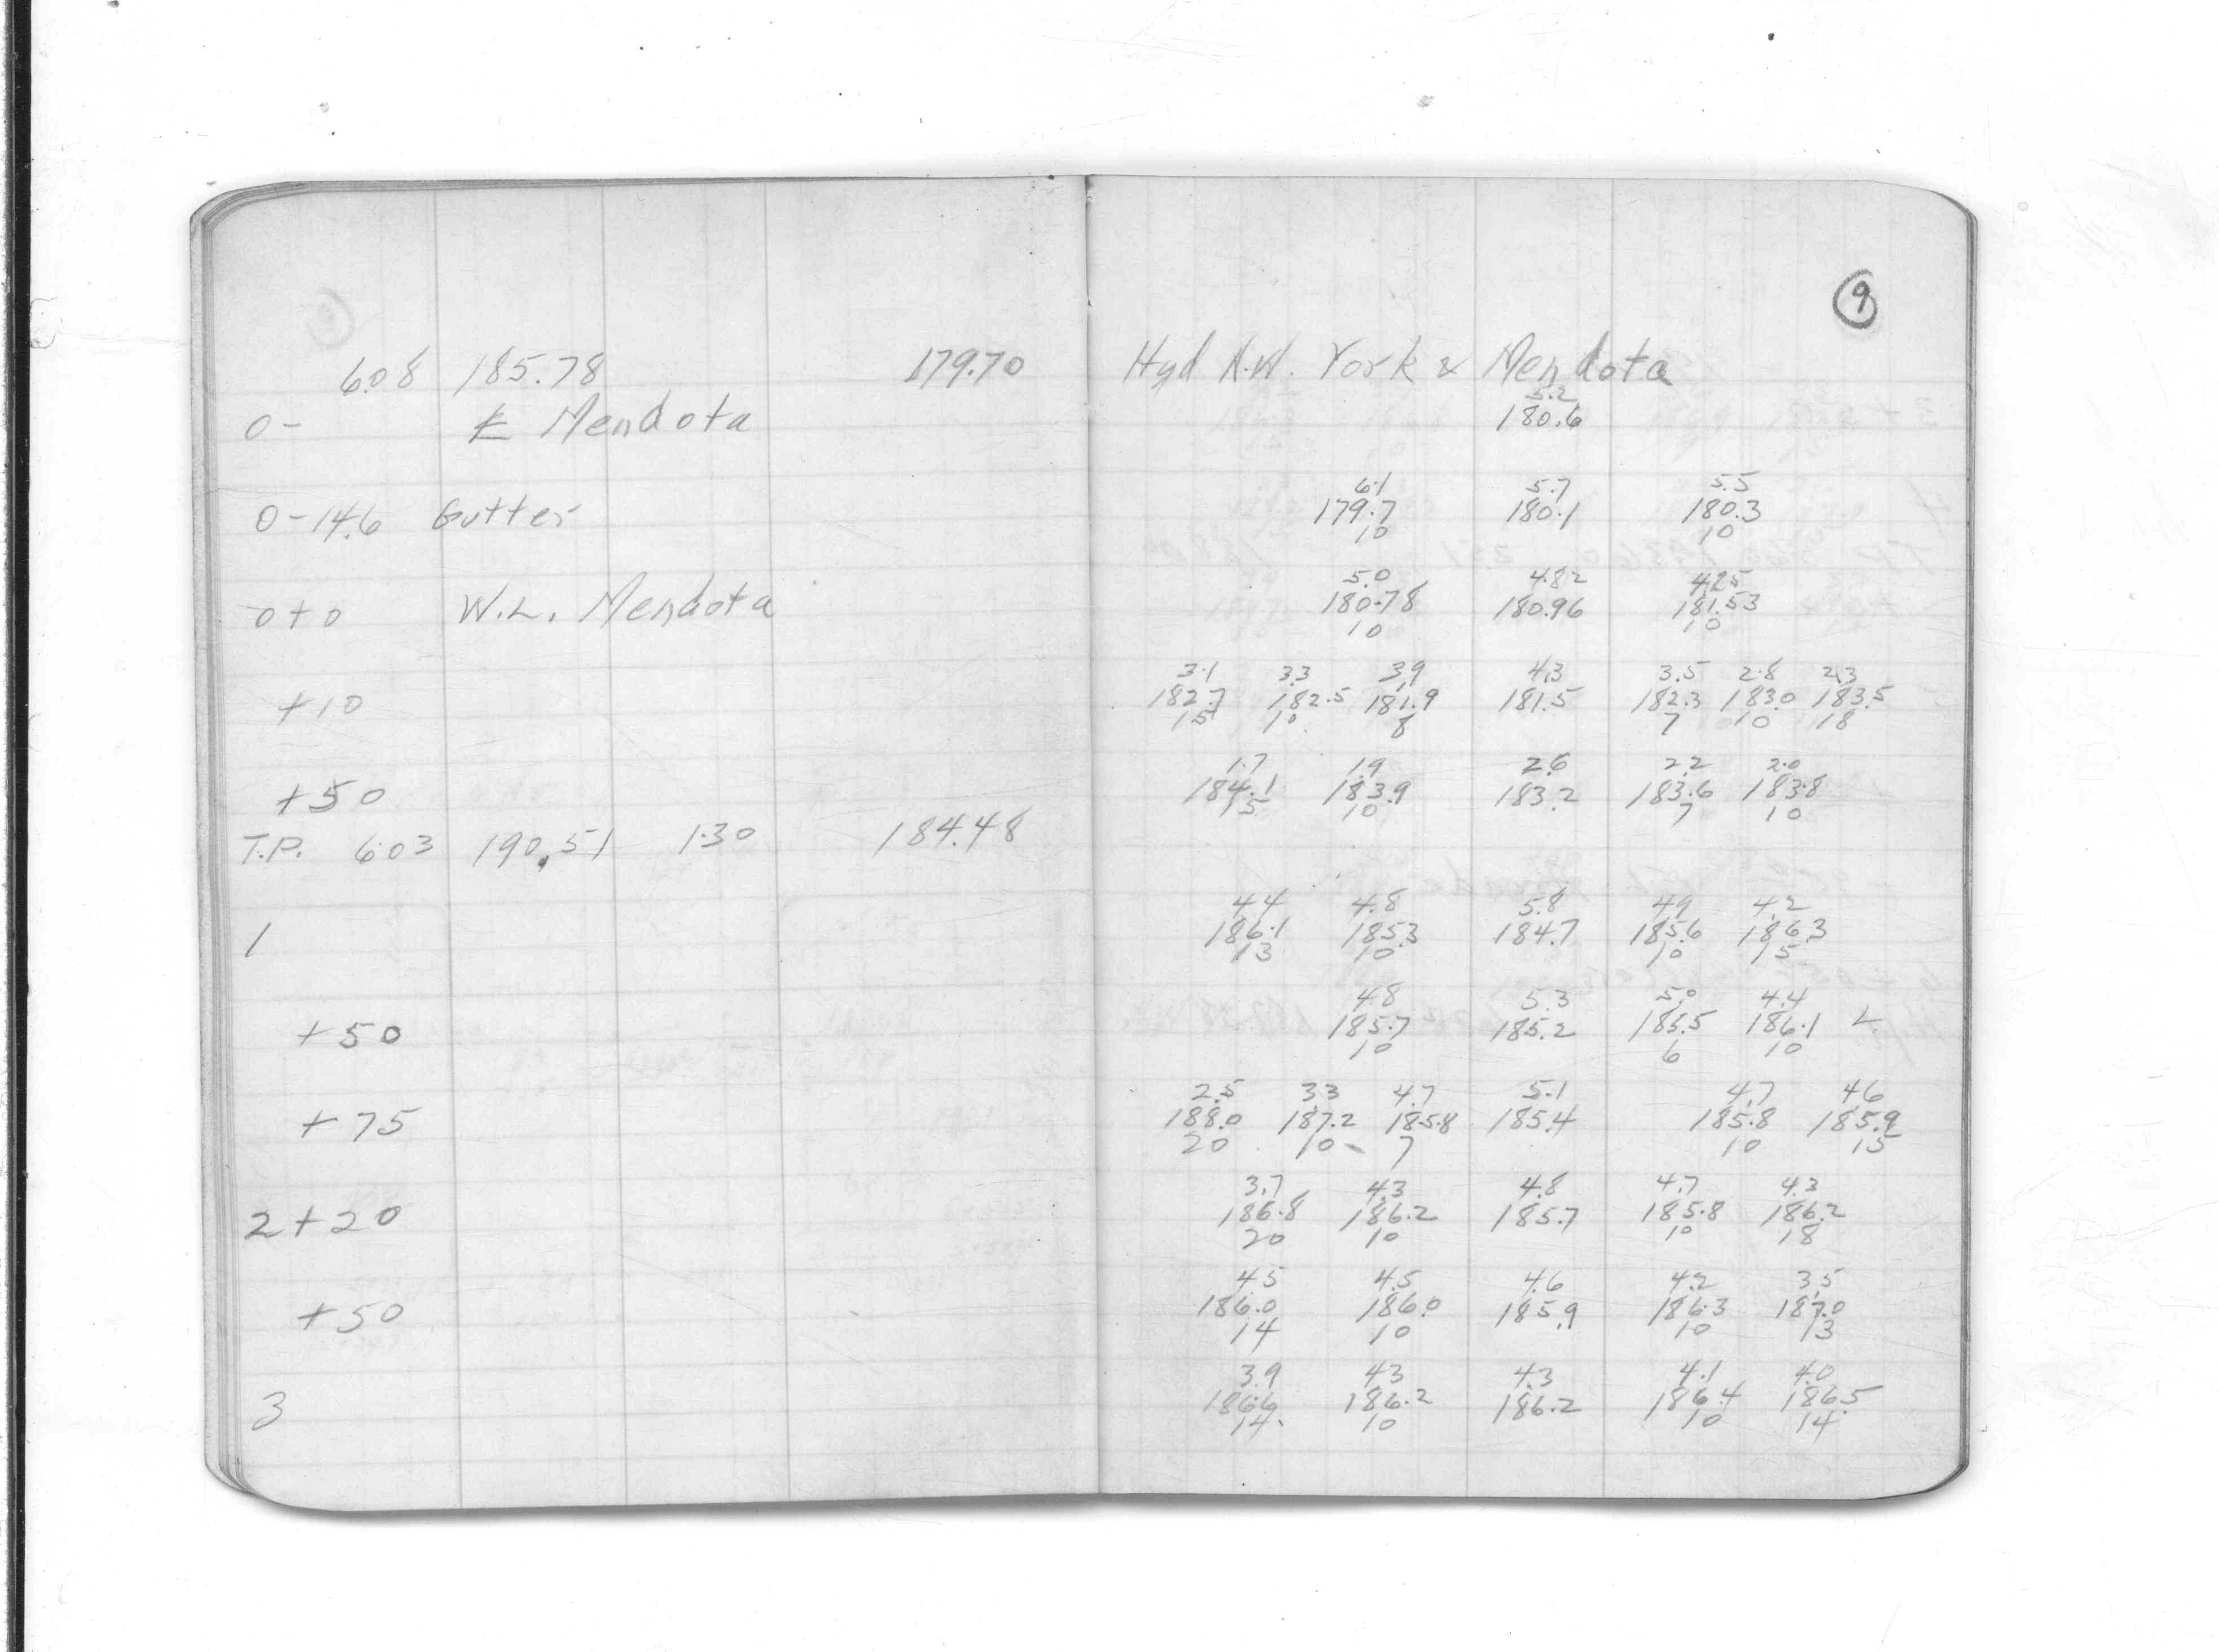 9
6.08 185.78 179.70 Hyd N.W. York & Mendota
5.2
0- ℄ Mendota 180.6
6.1 5.7 5.5
0-14.6 Gutter 179.7 180.1 180.3
10 10
5.0 4.82 4.25
0+0 W.L. Mendota 180.78 180.96 181.53
10 10
3.1 3.3 3.9 4.3 3.5 2.8 2.3
+10 182.7 182.5 181.9 181.5 182.3 183.0 183.5
15 10 8 7 10 18
1.7 1.9 2.6 2.2 2.0
+50 184.1 183.9 183.2 183.6 183.8
15 10 7 10
T.P. 6.03 190.51 1.30 184.48
4.4 4.8 5.8 4.9 4.2
1 186.1 185.3 184.7 185.6 186.3
13 10 10 15
4.8 5.3 5.0 4.4
+50 185.7 185.2 185.5 186.1 L.
10 6 10
2.5 3.3 4.7 5.1 4.7 4.6
+75 188.0 187.2 185.8 185.4 185.8 185.9
20 10 7 10 15
3.7 4.3 4.8 4.7 4.3
2+20 186.8 186.2 185.7 185.8 186.2
20 10 10 18
4.5 4.5 4.6 4.2 3.5
+50 186.0 186.0 185.9 186.3 187.0
14 10 10 13
3.9 4.3 4.3 4.1 4.0
3 186.6 186.2 186.2 186.4 186.5
14 10 10 14